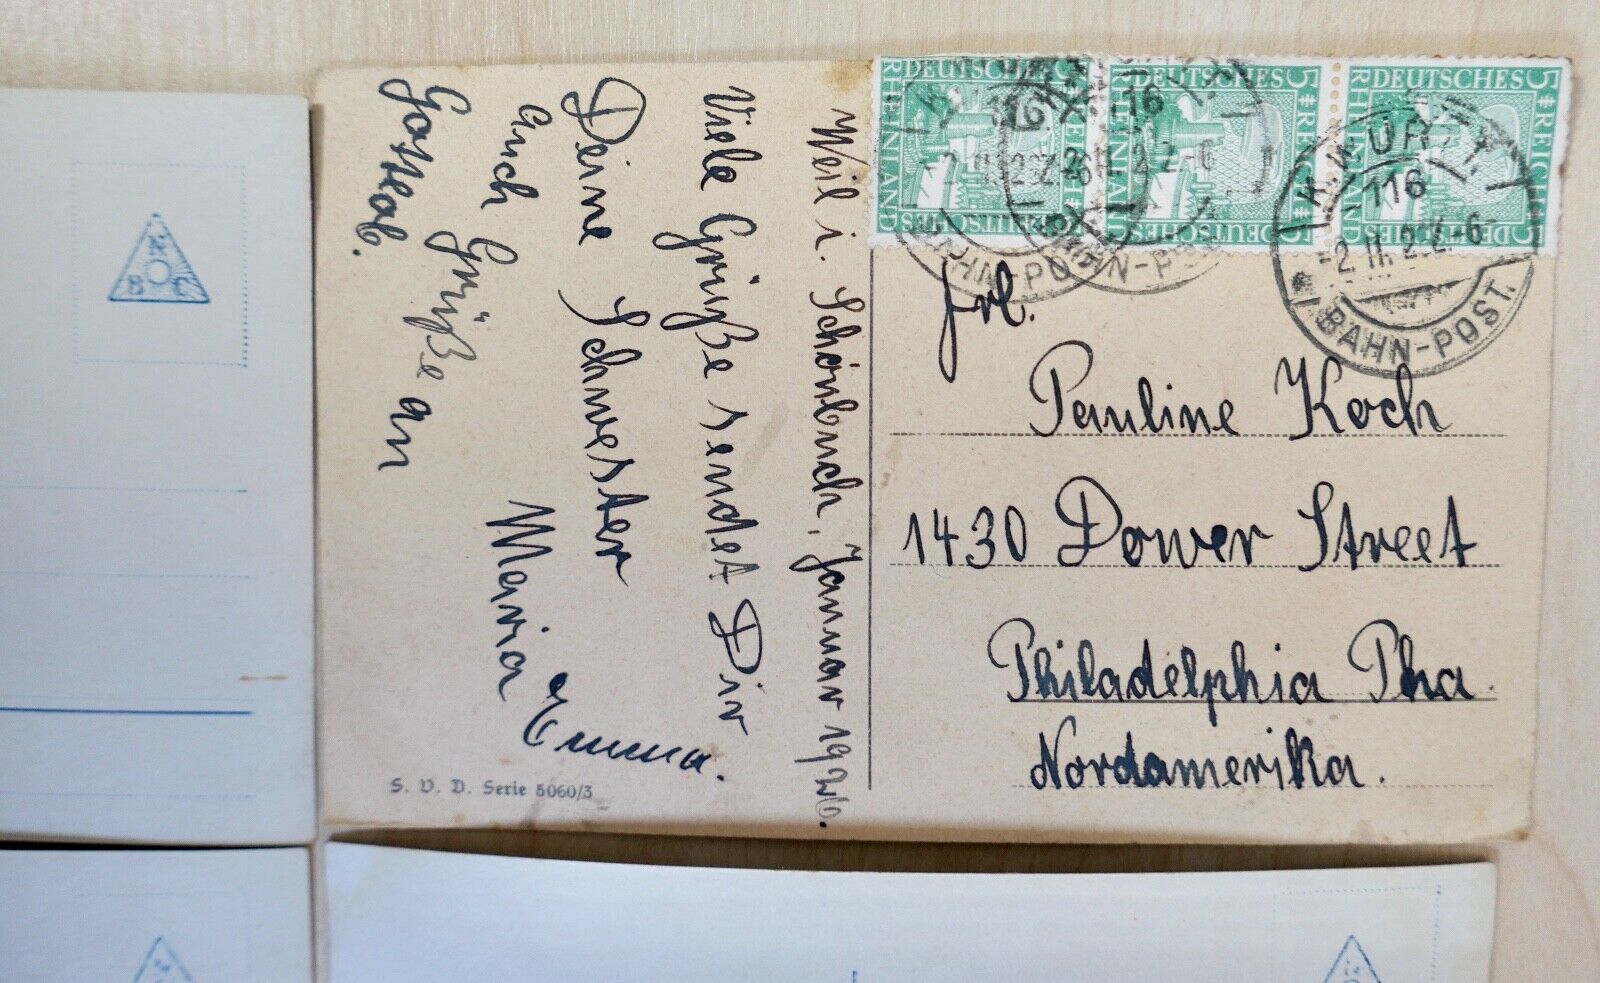 Weil i. Schönbuch, Januar 1926.
Viele Grüße sendet Dir
Deine Schwester
Emma.
Maria
auch Grüße an
Gottlob.
S. V. D. Serie 5060/3
DEUTSCHES REICH
RHEINLAND
5
DEUTSCHES REICH
RHEINLAND
5
DEUTSCHES REICH
RHEINLAND
5
116
BAHN-POST
116
BAHN-POST
116
BAHN-POST.
Frl.
Pauline Koch
1430 Dower Street
Philadelphia Pha.
Nordamerika.
N
B C